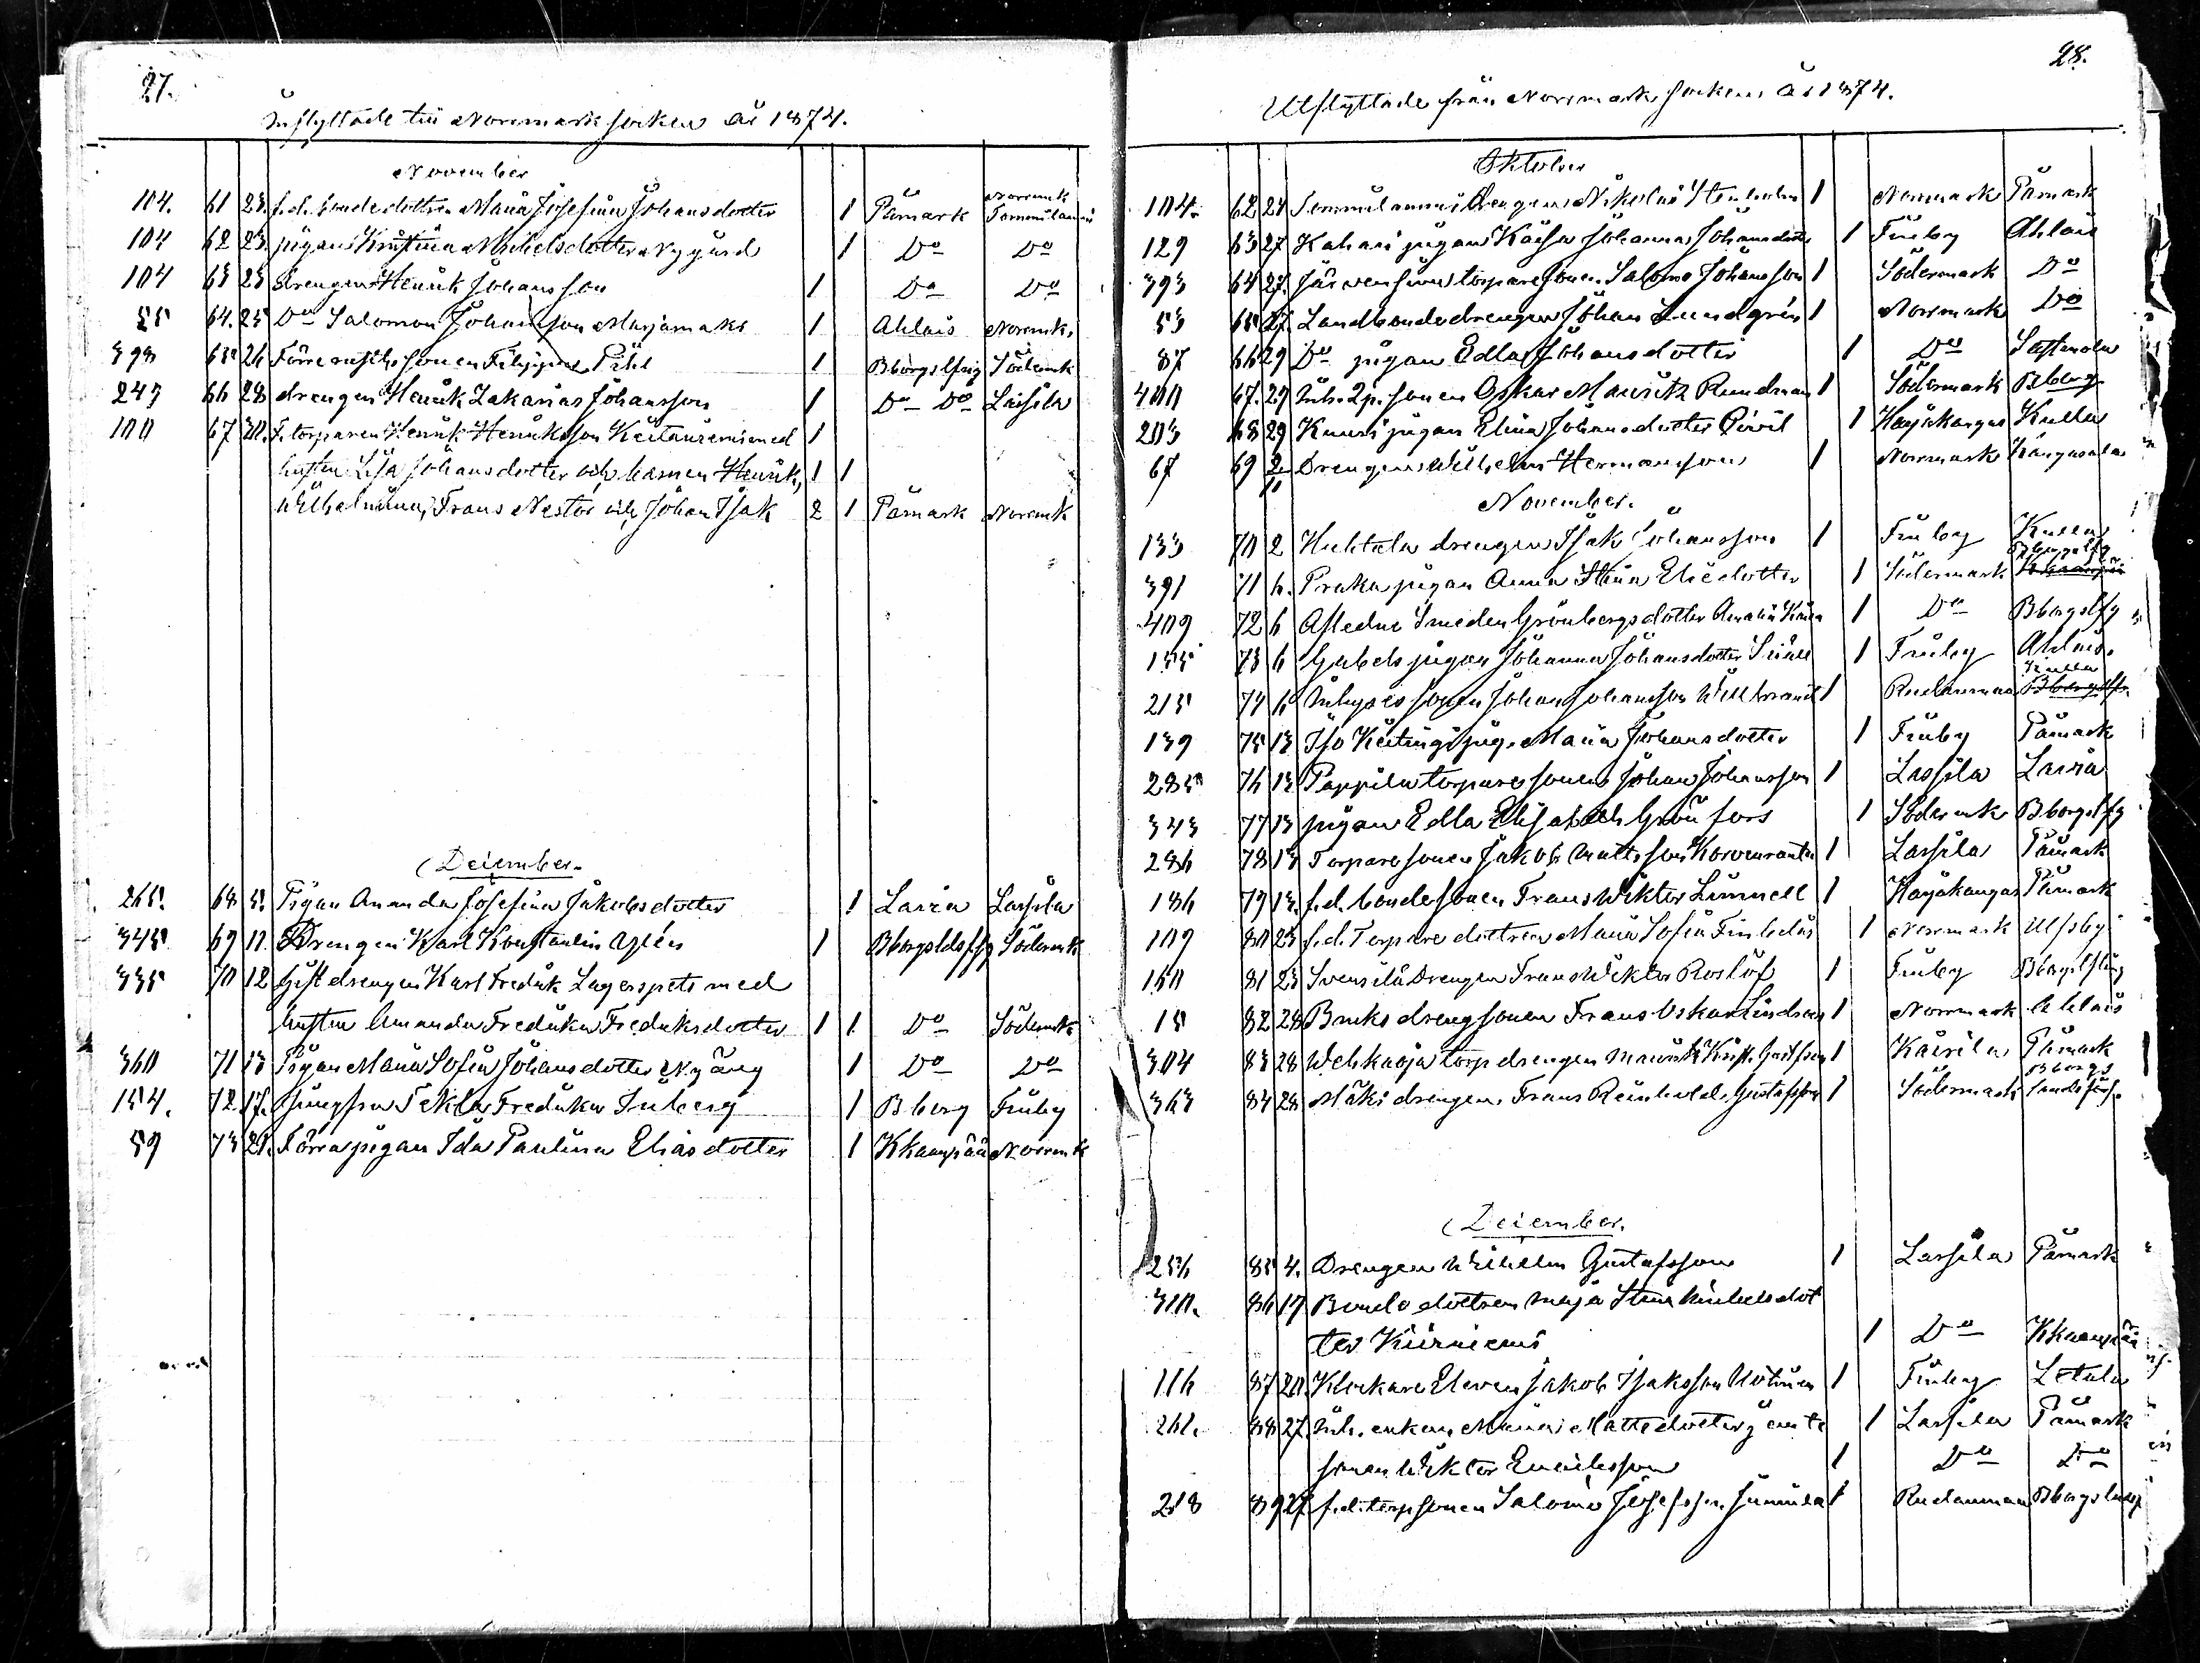 27.
Inflyttade till Norrmark socken år 1874.
November
104. 61 23. f.d. bondedottren Maria Josefina Johansdotter 1 Påmark Norrmk Tommilanmi
104 62 23 pigan Kristina Mikelsdotter Nygård 1 Do Do
104 63 23 drengen Henrik Johansson 1 Do Do
55 64. 25 Do Salomon Johansson Marjamaki 1 Ahlais Norrmk.
398 65 26 Förre sonen Filippus Pihl 1 Bborgslfrg Södermk
243 66 28 drengen Henrik Zakarias Johansson 1 Do Do Lassila
100 67 30. F. torparen Henrik Henriksson Keitaniemi med 1
hustru Lisa Johansdotter och barnen Henrik, 1 1
Wilhelmina, Frans Nestor och Johan Isak 2 1 Påmark Norrmk
December.
265. 68 5. Pigan Amanda Josefina Jakobsdotter 1 Lavia Lassila
345 69 11 Drengen Karl Konstantin Uglén 1 Bborgsldsfg Södermk
335 70 12 Gift drengen Karl Fredrik Lagerspets med
hustru Amanda Fredrika Fredriksdotter 1 1 Do Södermk
360 71 13 Pigan Maria Sofia Johansdotter Nyäng 1 Do Do
154. 72 17. Jungfru Tekla Fredrika Inberg 1 Bborg Finby
59 73 21. Förra pigan Ida Paulina Eliasdotter 1 Kkaanpää Norrmk
28.
Utflyttade från Norrmark socken år 1874.
Oktober
104. 62 24 Tommilanmi drengen Nikolai Stenholm 1 Norrmark Påmark
129 63 27 Kahari pigan Kaisa Johanna Johansdotter 1 Finby Ahlais
393 64 27. Järvensivu torparesonen Salomo Johansson 1 Södermark Do
53 65 27 Landbonde drengen Johan Lundgrén 1 Norrmark Do
87 66 29 Do pigan Edla Johansdotter 1 Do Sastmola
400 67. 29 Inh. 2p. sonen Oskar Mauritz Rundman 1 Södermark Bborg
203 68 29 Knuusi pigan Elina Johansdotter 1 Harjakangas Kulla
67 69 2/11 Drengen Wilhelm Hermansson 1 Norrmark Kangasala
November.
133 70 2 Huhtala drengen Isak Johansson 1 Finby Kulla
391 71 6. Praka pigan Anna Stina Eliedotter 1 Södermark Bborgslfg
409 72 6 Afledne Smeden Grönbergs dotter Amalia 1 Do Bborgslfg
155 73 6 Gabels pigan Johanna Johansdotter 1 Finby Ahlais.
215 74 6 Inhyses sonen Johan Johansson Willbrand 1 Rudanmaa Kulla Bborgslfr.
139 75 13 Iso Keitingi pig. Maria Johansdotter 1 Finby Påmark
285 76 13 Pappila torparesonen Johan Johansson 1 Lassila Lavia
343 77 13 pigan Edla Elisabeth Grönfors 1 Södermk Bborgslfg
286 78 13 Torparesonen Jakob Mattsson Korvenranta 1 Lassila Påmark
186 79 13. f.d. bondesonen Frans Wiktor Linnell 1 Harjakangas Påmark
109 80 23 f.d. Torparedottren Maria Sofia 1 Norrmark Ulfsby
160 81 23 Svensilä Drengen Frans Wiktor Roslöf 1 Finby Bborgslfrg
15 82 28 Bruks drengsonen Frans Oskar Lindroos 1 Norrmark Ahlais
304 83 28 Wehkaoja torp drengen Maurits Krist. Gustfsson 1 Kairila Påmark
363 84 28 Mäki drengen Frans Reinhold Gustafsson 1 Södermark Bborgs landsförs.
December.
256 85 4. Drengen Wilhelm Gustafsson 1 Lassila Påmark
310. 86 17 Bondedottren Maja Stina Mickelsdot
ter Kiviniemi 1 Do Kkaanpää
116 87 20. Klockare Eleven Jakob Isaksson Uotinen 1 Finby Letala
261. 88 27. Inh. enkan Maria Mattsdotter jemte 1 Lassila Påmark
sonen Wiktor Emilsson 1 Do Do
218 89 27 f.d. torpsonen Salomo Josefsson Junnila 1 Rudanmaa Bborgslndsf